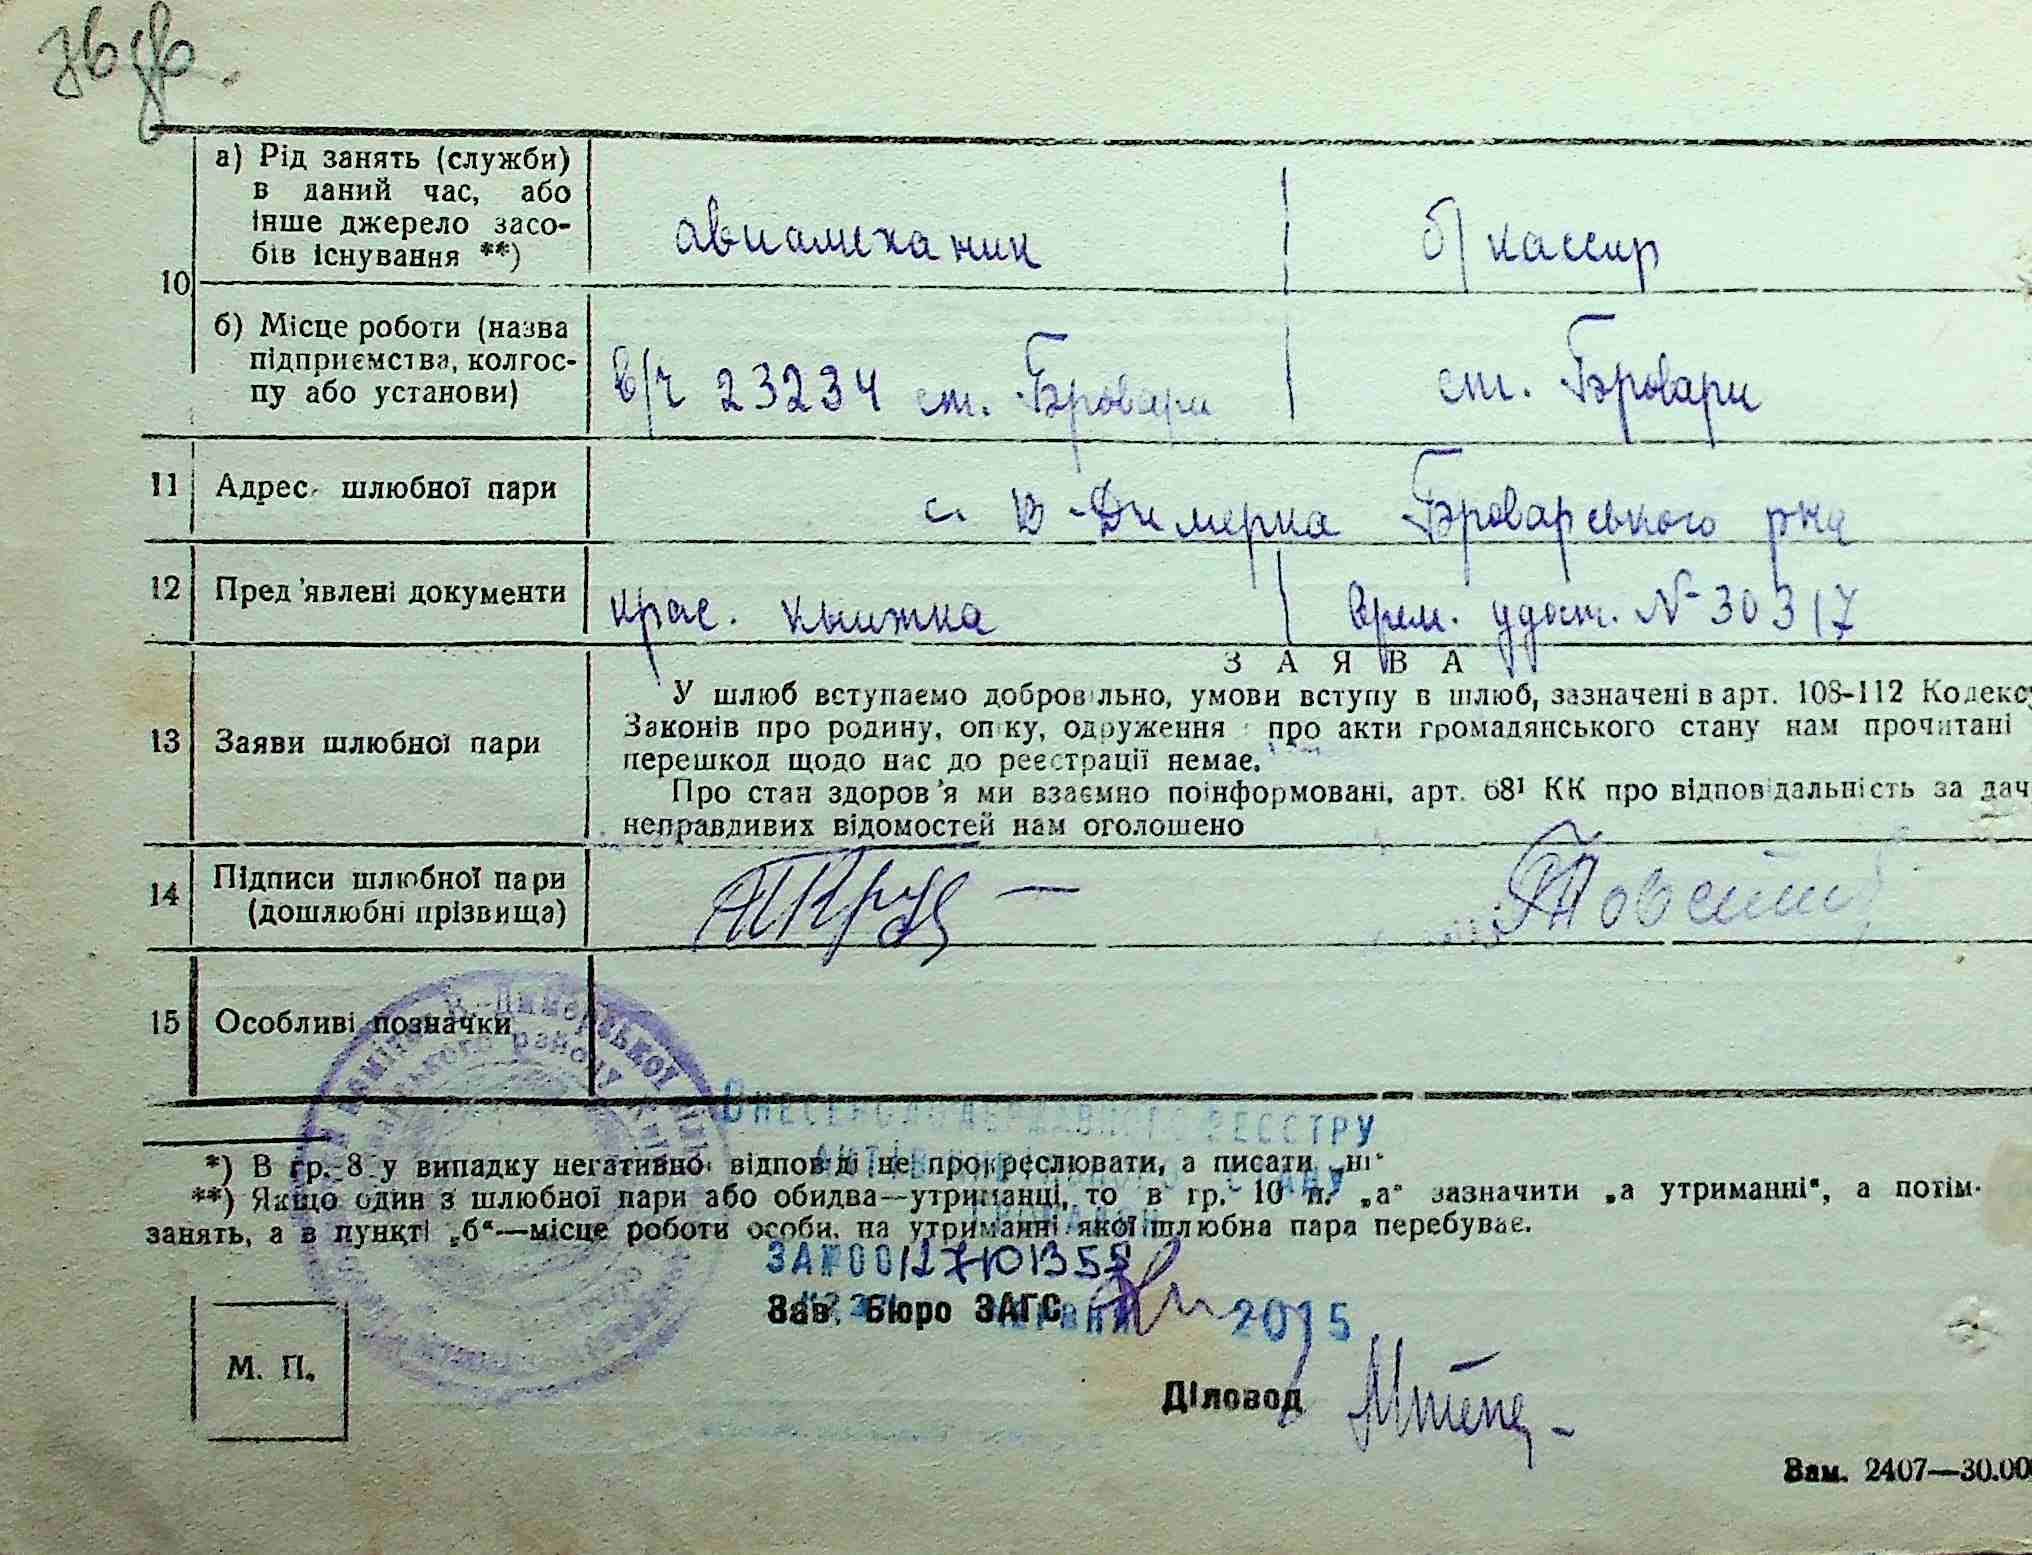 зв
а) Рід занять (служби)
в даний час, або
інше джерело засо-
бів існування **)
авиамеханик
б/кассир
10
б) Місце роботи (назва
підприємства, колгос-
пу або установи)
в/ч 23234 ст. Бровари
ст. Бровари
11 Адрес шлюбної пари
с. В-Димерка Броварського р-на
12 Пред'явлені документи
крас. книжка
врем. удост. № 30317
ЗАЯВА
13 Заяви шлюбної пари
У шлюб вступаємо добровільно, умови вступу в шлюб, зазначені в арт. 108-112 Кодексу
Законів про родину, опіку, одруження і про акти громадянського стану нам прочитані
перешкод щодо нас до реєстрації немає.
Про стан здоров'я ми взаємно поінформовані, арт. 68¹ КК про відповідальність за дач
неправдивих відомостей нам оголошено
14 Підписи шлюбної пари
(дошлюбні прізвища)
15 Особливі позначки
ВНЕСЕНО ДО ДЕРЖАВНОГО РЕЄСТРУ
АКТІВ ЦИВІЛЬНОГО СТАНУ
ГРОМАДЯН
*) В гр. 8 у випадку негативної відповіді не прокреслювати, а писати „ні"
**) Якщо один з шлюбної пари або обидва—утриманці, то в гр. 10 п. „а" зазначити „а утриманні", а потім
занять, а в пункті „б"—місце роботи особи, на утриманні якої шлюбна пара перебуває.
ЗА №00127101355
Зав. Бюро ЗАГС
2015
М. П.
Діловод
Зам. 2407—30.00